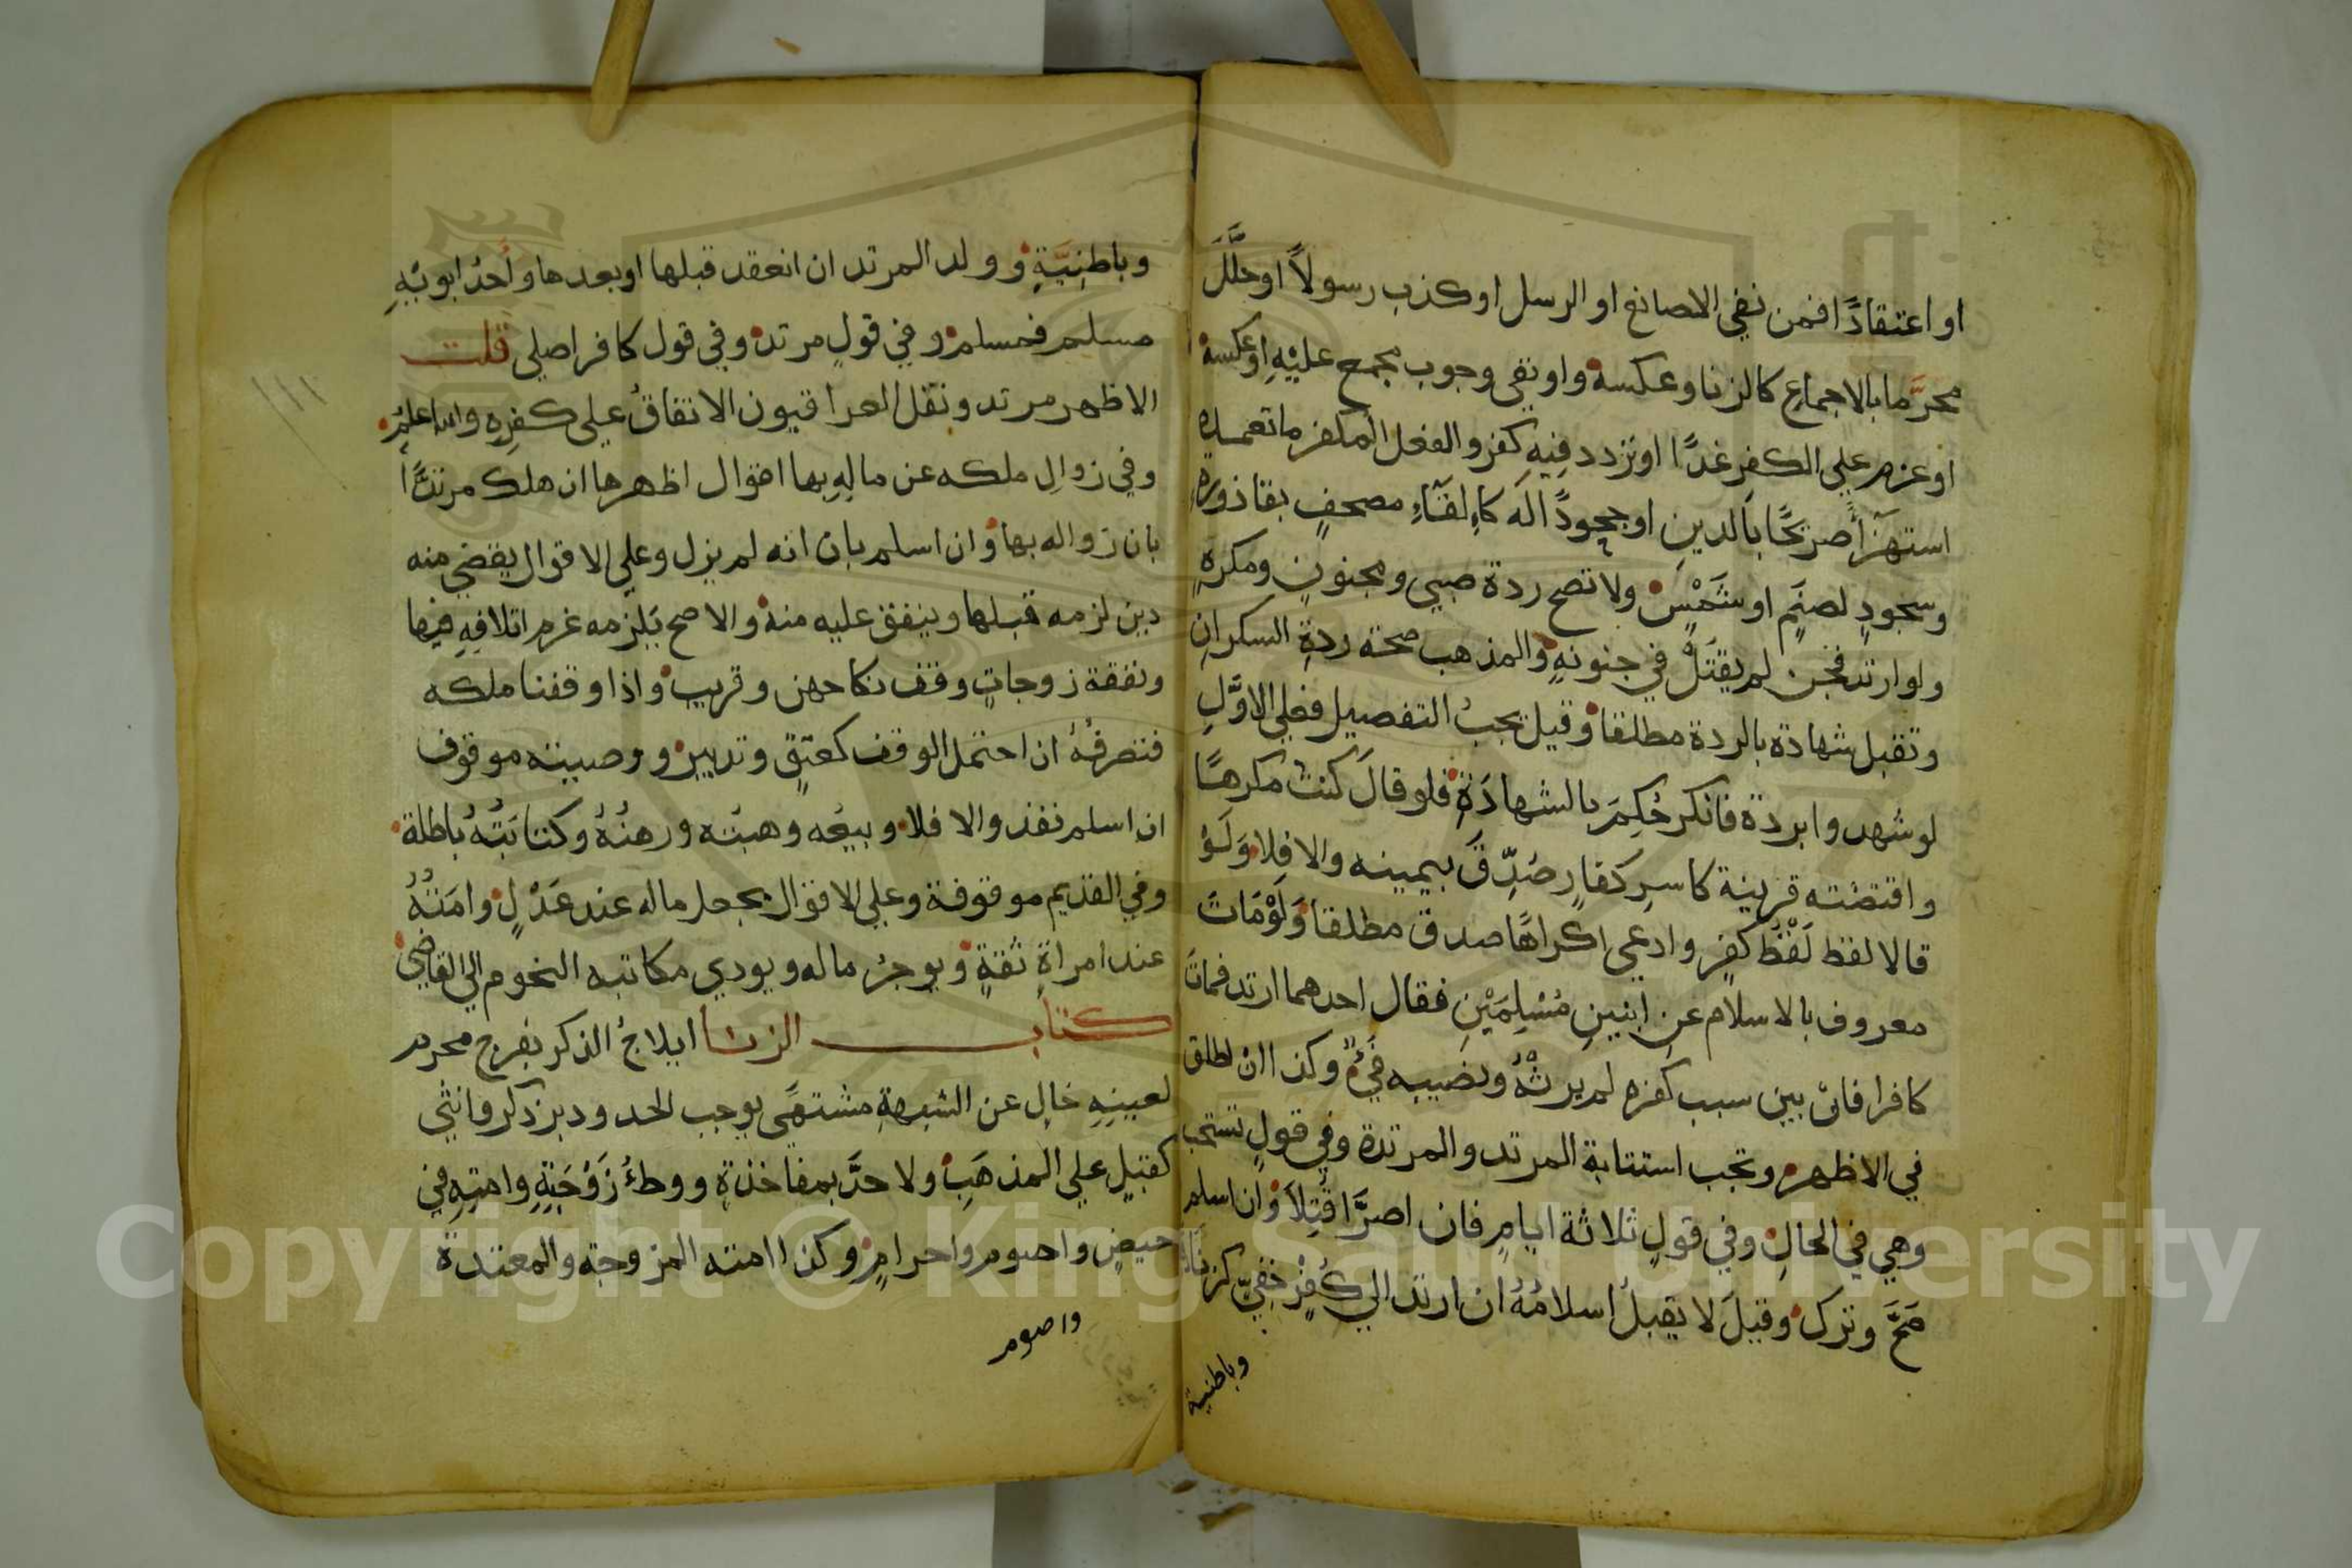 او اعتقادًا فمن نفي الصانع او الرسل او كذب رسولاً او حلَّلَ
محرَّما بالاجماع كالزنا وعكسه واو نفى وجوب مجمع عليْهِ او عكسه
او عزم علي الكفر غدًا او تردد فيهِ كفر والفعل المكفر ما تعمده
استهزآً صريحًا بالدينِ او جحودًا لَه كاءِلقَآءِ مصحفٍ بقاذورهٍ
وسجودٍ لصنَمٍ او شَمْسٍ ولا تصح ردة صبي ومجنونٍ ومكرهٍ
ولو ارتد فجن لم يقتَلْ في جنونهِ والمذهب صحته ردةِ السكرانِ
وتقبل شهادة بالردة مطلقا وقيل يجبُ التفصيل فعلي الاوَّلِ
لو شهدوا بردة فانكر حُكِمَ بالشهادَةِ فلو قالَ كنتُ مكرهًا
واقتضته قرينة كاسرِ كفارٍ صُدِّقَ بيمينه والا فلا وَلَوْ
قالا لفظ لَفْظَ كفرٍ وادعي اكراهًا صدق مطلقا وَلَوْمَاتَ
معروف بالاسلام عن ابنينِ مُسْلِمَيْنِ فقال احدهما ارتد فماتَ
كافرا فان بين سبب كفره لم يرثْهُ ونصيبه فَيْءٌ وكذا ان اطلق
في الاظهر وتجب استتابة المرتد والمرتدة وفي قولٍ تستحب
وهي في الحالِ وفي قولٍ ثلاثة ايامٍ فان اصرَّا قُتِلاَ وان اسلم
صَحَّ وترك وقيلَ لا يقبلُ اسلامُهُ ان ارتد الي كُفْرٍ خفِيّ كزناد
وباطنية
وباطنِيَّةٍ وولد المرتد ان انعقد قبلها او بعدها واَحدُ ابويْهِ
مسلم فمسلم وفي قولٍ مرتد وفي قول كافر اصلي قلت
الاظهر مرتد ونقل العراقيون الاتفاقُ علي كفرِهِ والله اعلم
وفي زوالِ ملكه عن مالِهِ بها اقوال اظهرها ان هلك مرتدًّا
بان زواله بها وان اسلم بان انه لم يزل وعلي الاقوال يقضي منه
دين لزمه قبلها وينفق عليه منه والاصح يَلزمه غرم اتلافِهِ فيها
ونفقة زوجاتٍ وقف نكاحهن وقريبٍ واذا وقفنا ملكه
فتصرفُهُ ان احتمل الوقف كعتقٍ وتدبيرٍ ووصيته موقوف
ان اسلم نفذ والا فلا وبيعُه وهبتُه ورهنُهُ وكتابَتُهُ باطلة
وفي القديم موقوفة وعلي الاقوال يجعل ماله عند عَدْلٍ وامَتُهُ
عند امراةٍ ثقةٍ ويوجرُ ماله ويودي مكاتبه النجوم الي القاضي
كتاب الزنا ايلاجُ الذكر بفرج محرم
لعينِهِ خالٍ عن الشبهةِ مشتهًي يوجب الحد ودبر ذكر وانثي
كقبلٍ علي المذهَبِ ولا حدَّ بمفاخذةٍ ووطءُ زَوْجَتِهِ وامتِهِ في
حيضٍ واصوم واحرامٍ وكذا امته المزوجه والمعتدة
واصوم
١١١
Copyright © King Saud University